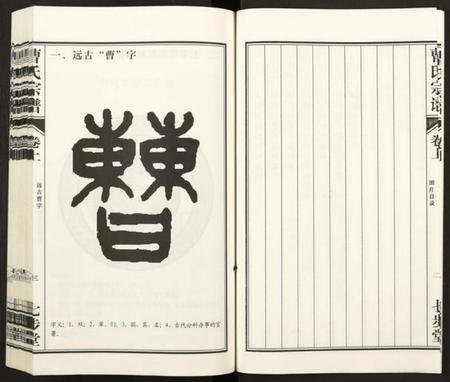 一、远古“曹”字
曹
字义：1、双；2、辈、们；3、国、氏、姓；4、古代分科办事的官
署。
曹氏宗谱
卷上
远古曹字
三
七步堂
曹氏宗谱
卷上
图片目录
二
七步堂